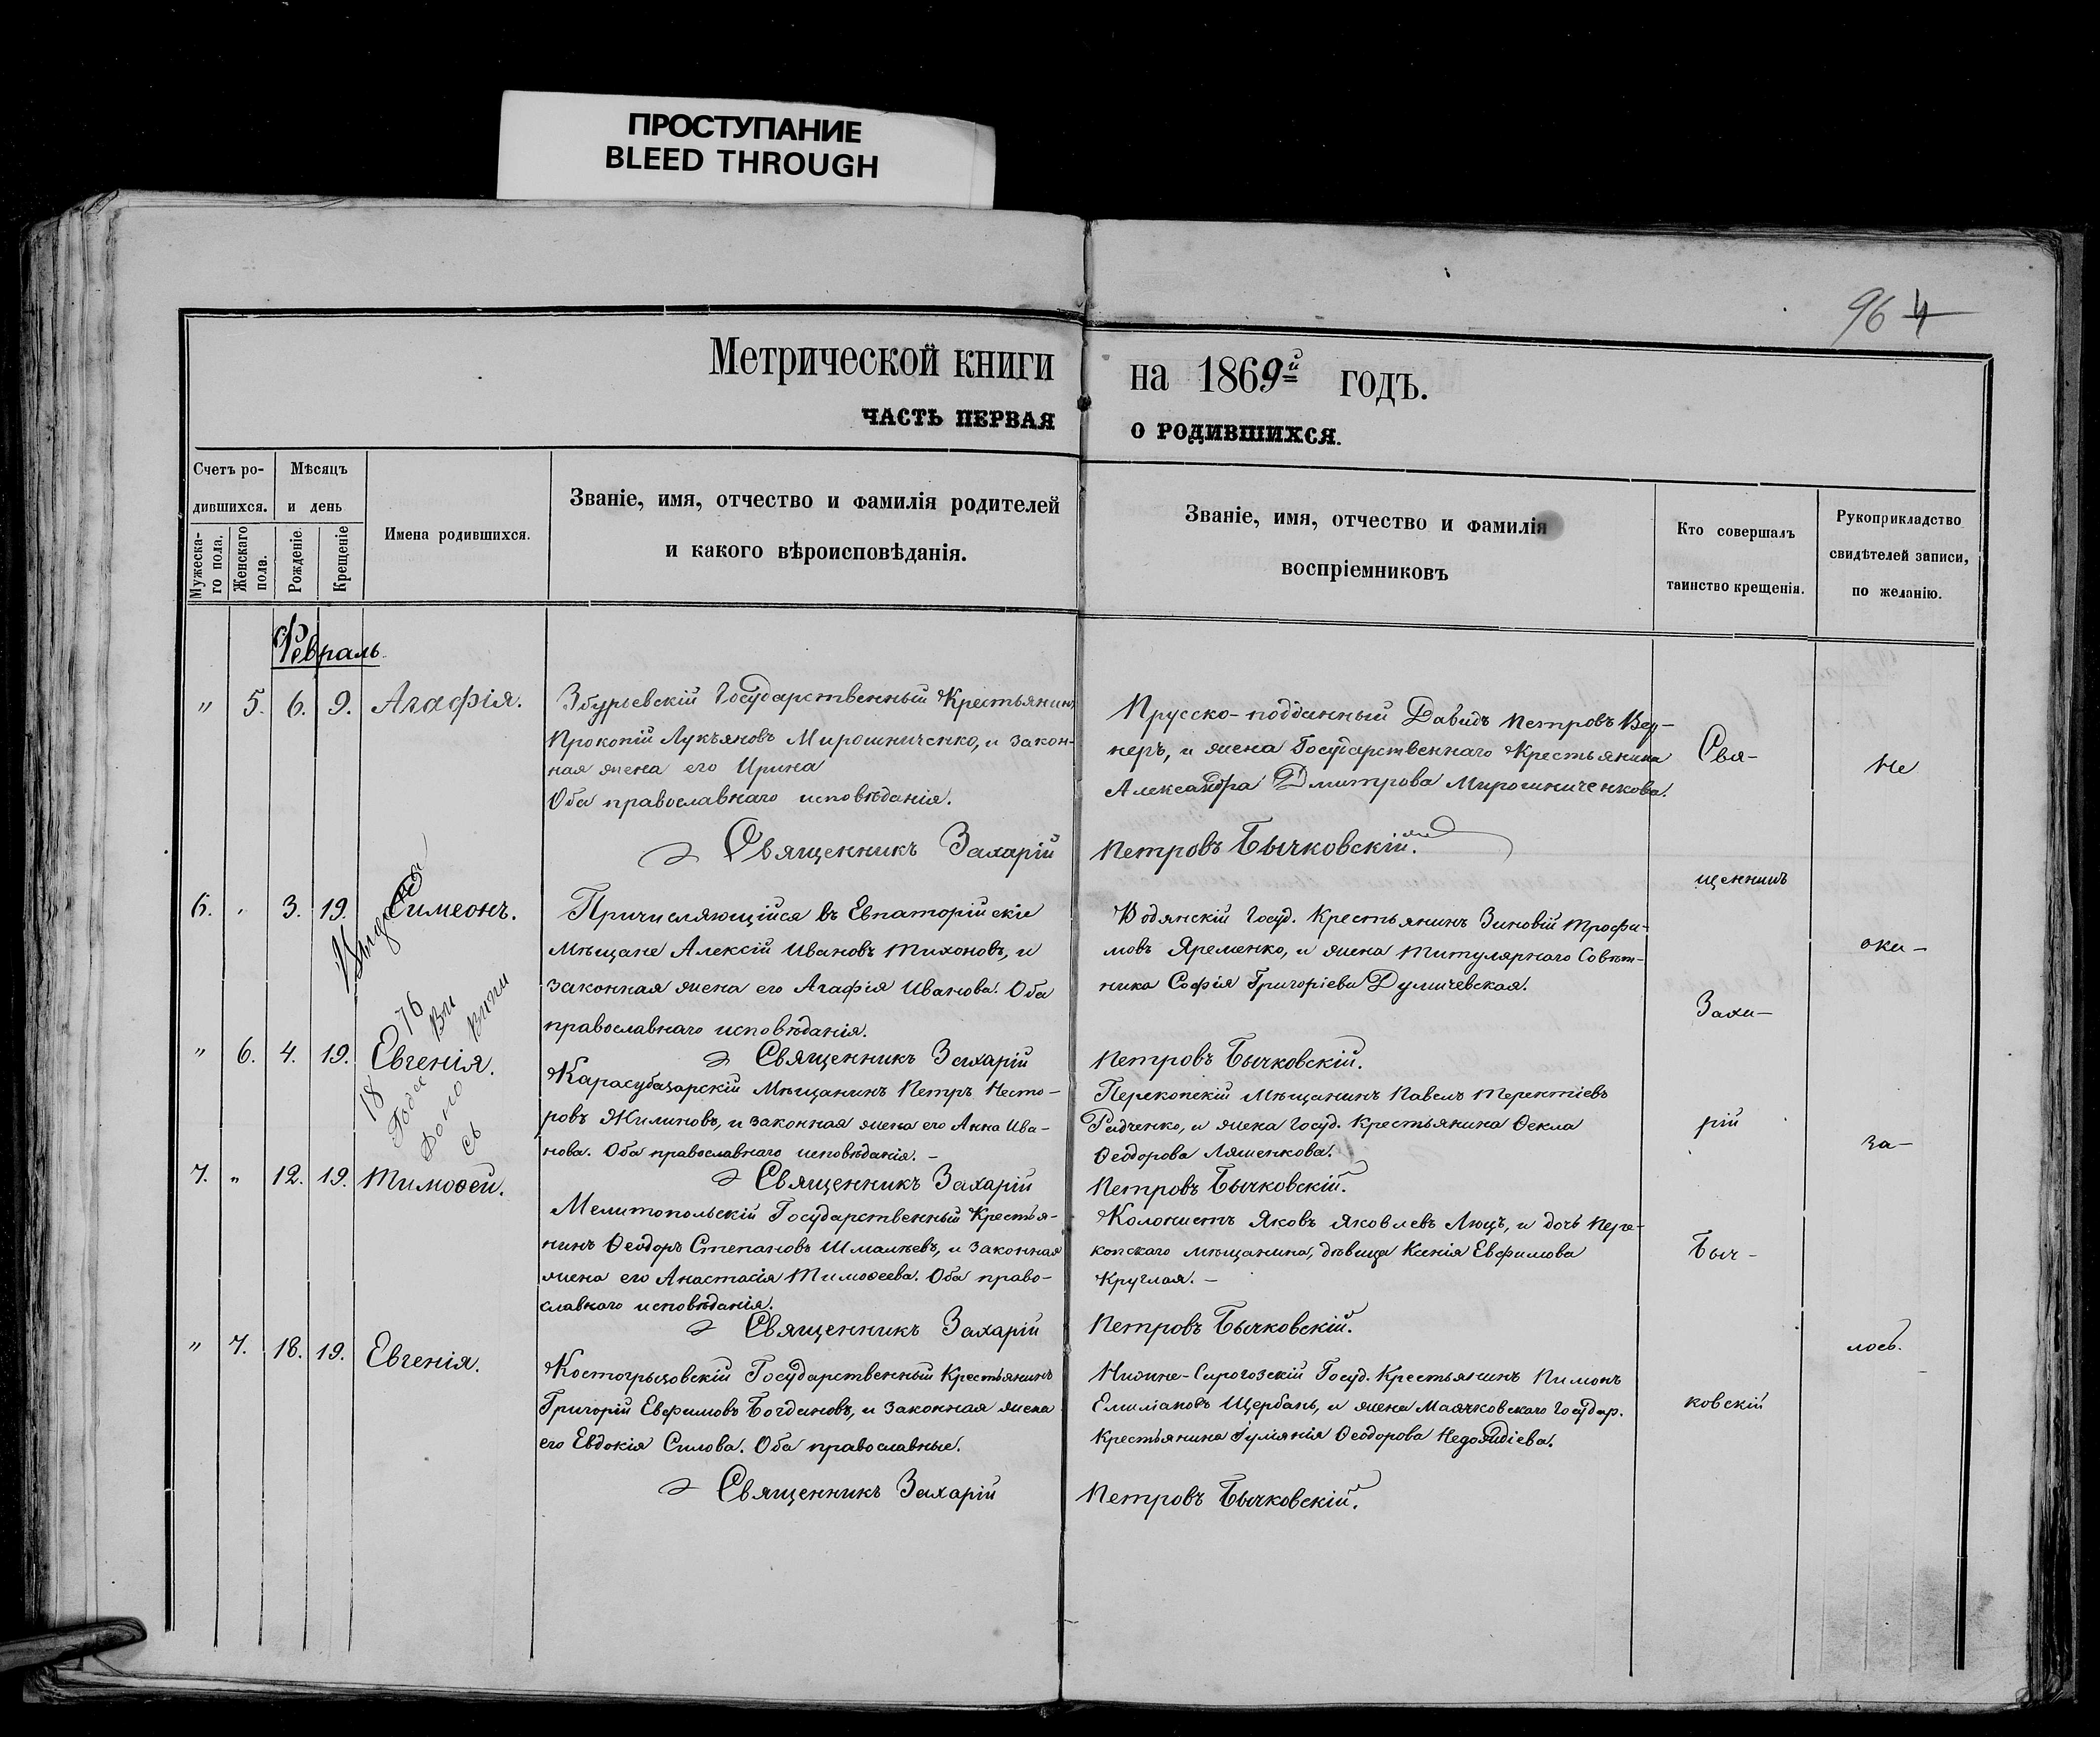 ПРОСТУПАНИЕ
BLEED THROUGH
96 4
Метрической книги на 1869й годъ.
ЧАСТЬ ПЕРВАЯ О РОДИВШИХСЯ.
Счетъ ро-
дившихся.
Мужеска-
го пола.
Женскаго
пола.
Мѣсяцъ
и день
Рожденіе.
Крещеніе
Имена родившихся.
Званіе, имя, отчество и фамилія родителей
и какого вѣроисповѣданія.
Званіе, имя, отчество и фамилія
воспріемниковъ
Кто совершалъ
таинство крещенія.
Рукоприкладство
свидѣтелей записи,
по желанію.
Февраль
" 5. 6. 9. Агафія.
Збурьевскій Государственный Крестьянинъ
Прокопій Лукьяновъ Мирошниченко, и закон-
ная жена его Ирина
Оба православнаго исповѣданія.
Прусско-подданный Давидъ Петровъ
неръ, и жена Государственнаго Крестьянина
Александра Дмитрова Мирошниченкова.
Священникъ Захарій Петровъ Бычковскій.
6. " 3. 19. Симеонъ.
Причисляющійся въ Евпаторійскіе
Мѣщане Алексій Ивановъ Тихоновъ, и
законная жена его Агафія Иванова. Оба
православнаго исповѣданія.
Водянскій Госуд. Крестьянинъ Зиновій Трофи-
мовъ Яременко, и жена Титулярнаго Совѣт-
ника Софія Григоріева
Священникъ Захарій Петровъ Бычковскій.
1876
Года
" 6. 4. 19. Евгенія.
Карасубазарскій Мѣщанинъ Петръ Несто-
ровъ Жилиновъ, и законная жена его Анна Ива-
нова. Оба православнаго исповѣданія. -
Перекопскій Мѣщанинъ Павелъ Терентіевъ
Радченко, и жена Госуд. Крестьянина Ѳекла
Ѳеодорова Ляшенкова.
Священникъ Захарій Петровъ Бычковскій.
7. " 12. 19. Тимоѳей.
Мелитопольскій Государственный Крестья-
нинъ Ѳеодоръ Степановъ и законная
жена его Анастасія Тимоѳеева. Оба право-
славнаго исповѣданія.
Колонистъ Яковъ Яковлевъ Люцъ, и дочь Пере-
копскаго мѣщанина, дѣвица Ксенія Евфимова
Круглая. -
Священникъ Захарій Петровъ Бычковскій.
" 7. 18. 19. Евгенія.
Костогрызовскій Государственный Крестьянинъ
Григорій Евфимовъ Богдановъ, и законная жена
его Евдокія Силова. Оба православные.
Нижне-Сирогозскій Госуд. Крестьянинъ Пимонъ
Емиліановъ Щербань, и жена Маячковскаго Государ.
Крестьянина Іуліянія Ѳеодорова
Священникъ Захарій Петровъ Бычковскій.
Свя-
щенникъ
Заха-
рій
Быч-
ковскій
Не
ока-
за-
лось.